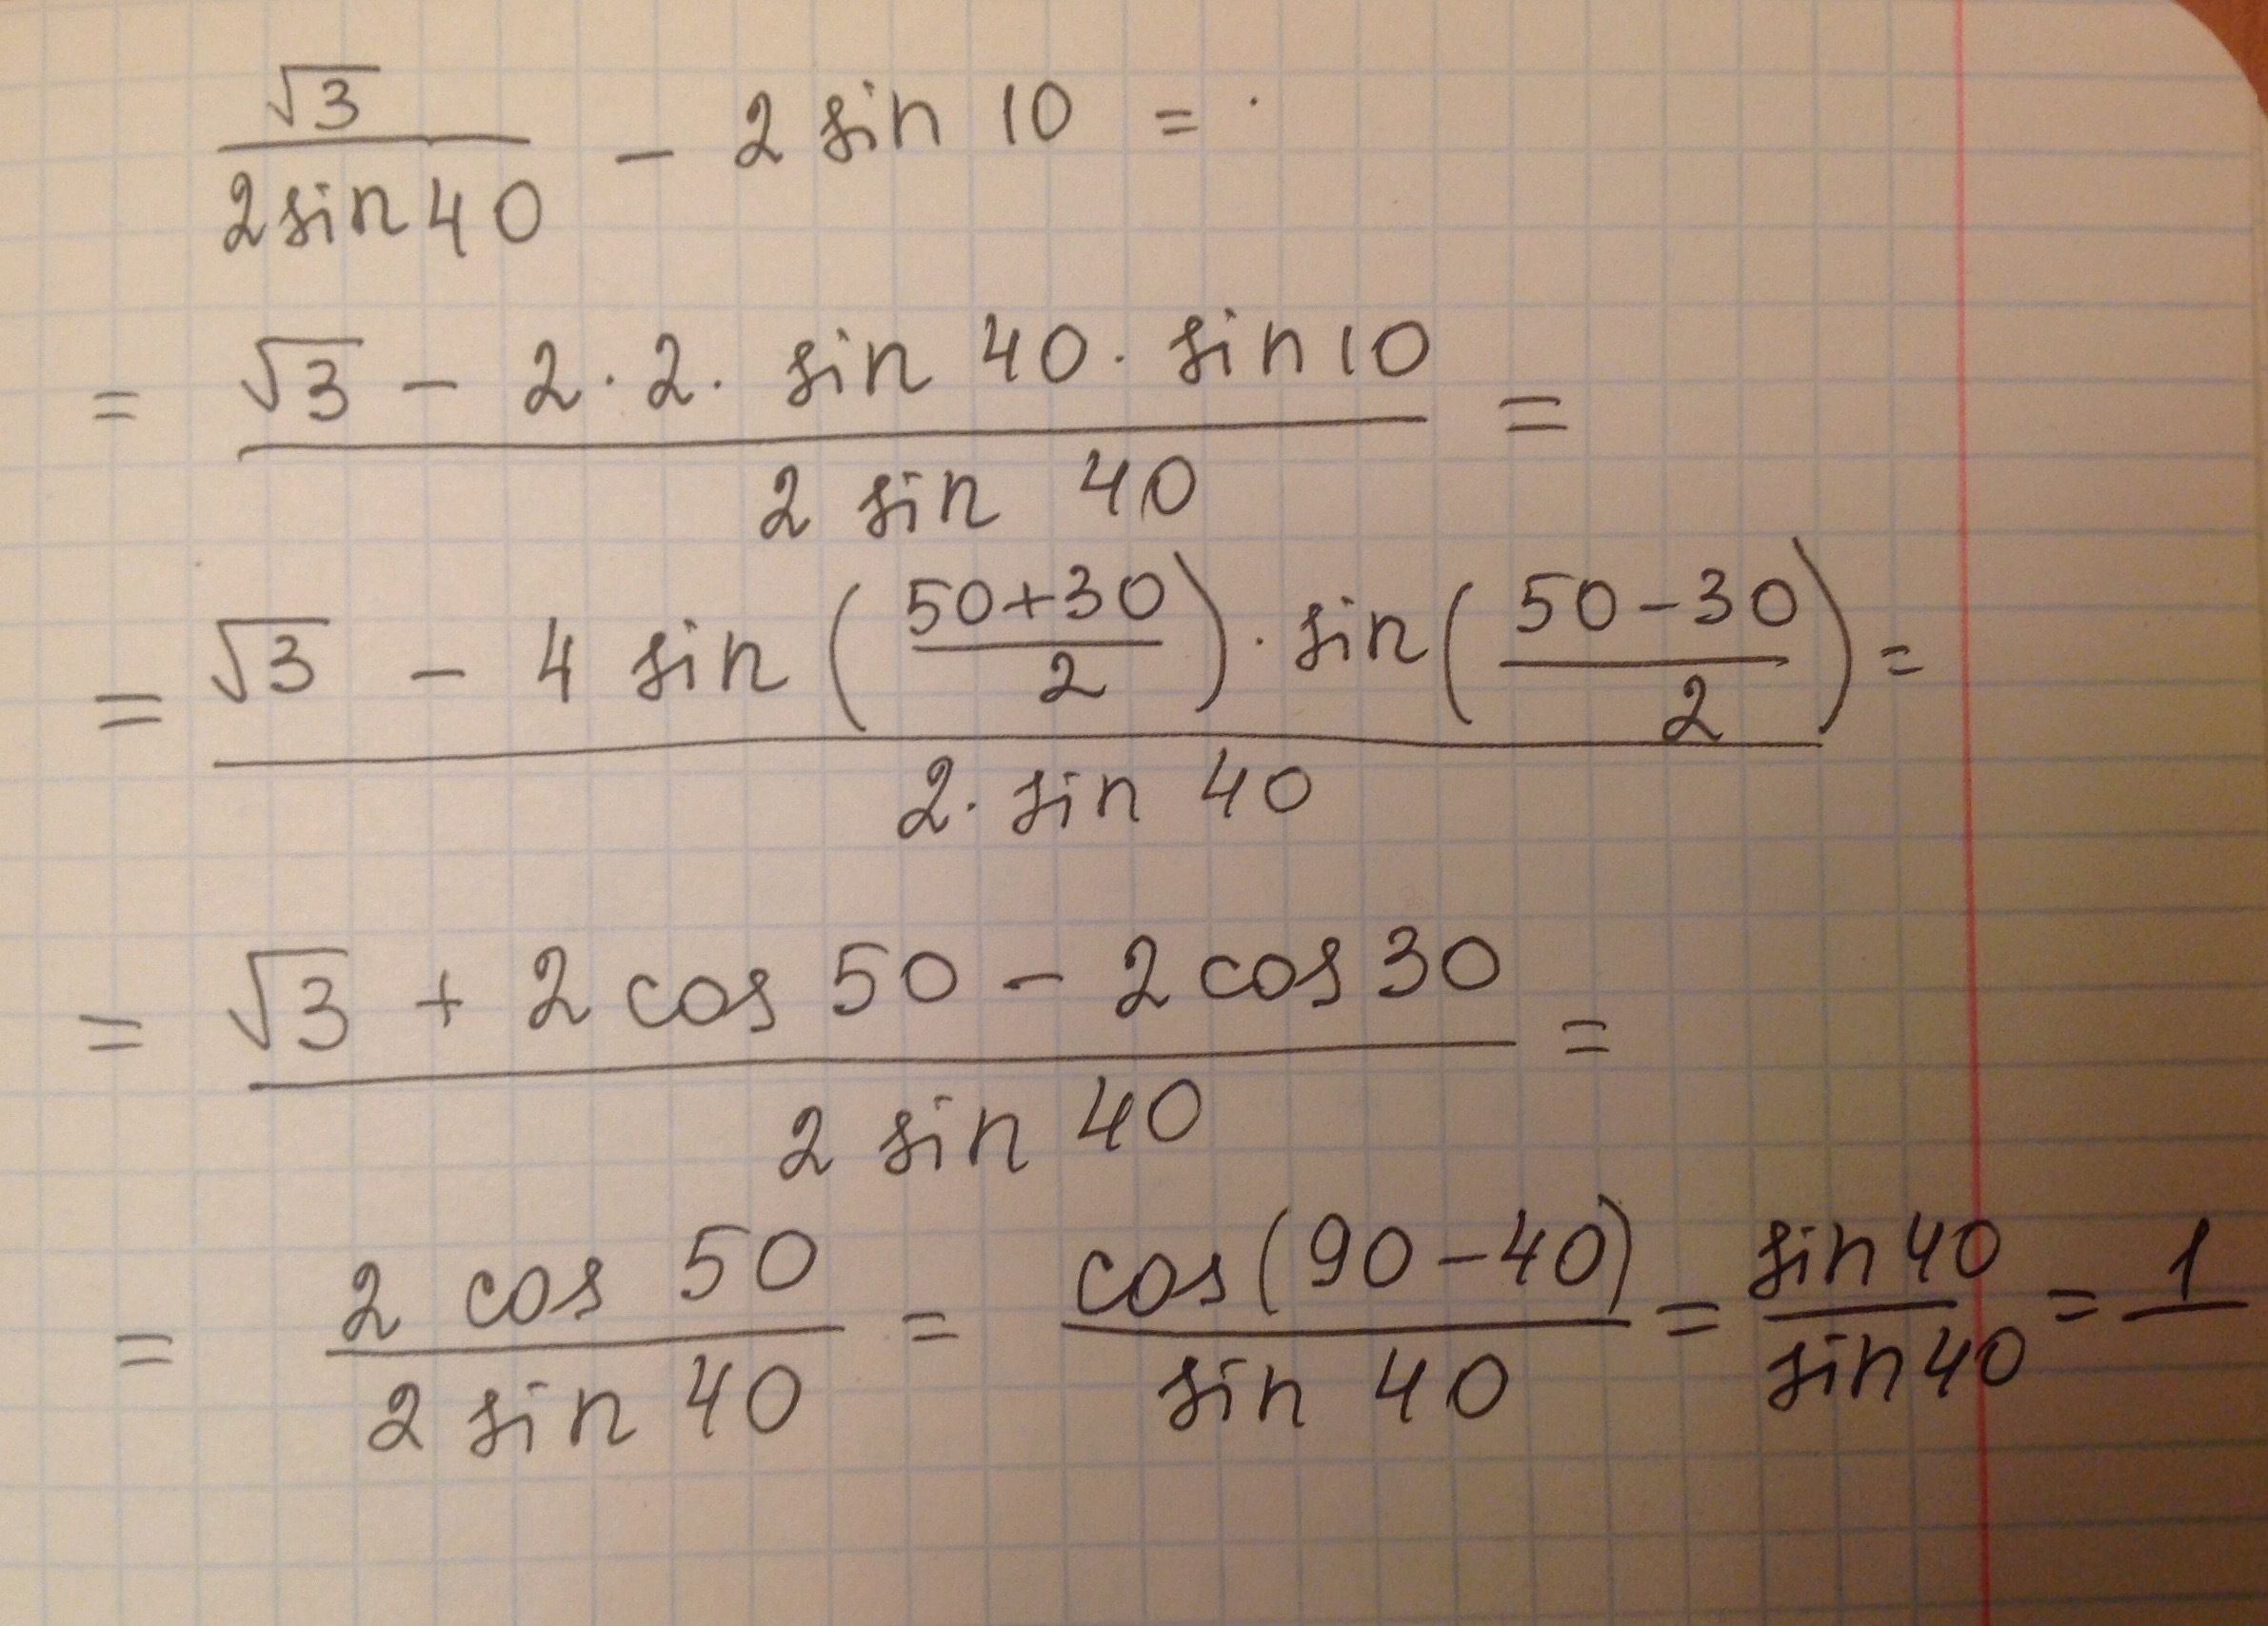 √3/(2sin40) - 2 sin 10 =
= (√3 - 2·2· sin 40 · sin 10)/(2 sin 40) =
= (√3 - 4 sin((50+30)/2) · sin((50-30)/2))/(2· sin 40) =
= (√3 + 2 cos 50 - 2 cos 30)/(2 sin 40) =
= (2 cos 50)/(2 sin 40) = cos(90-40)/(sin 40) = sin 40/sin 40 = 1